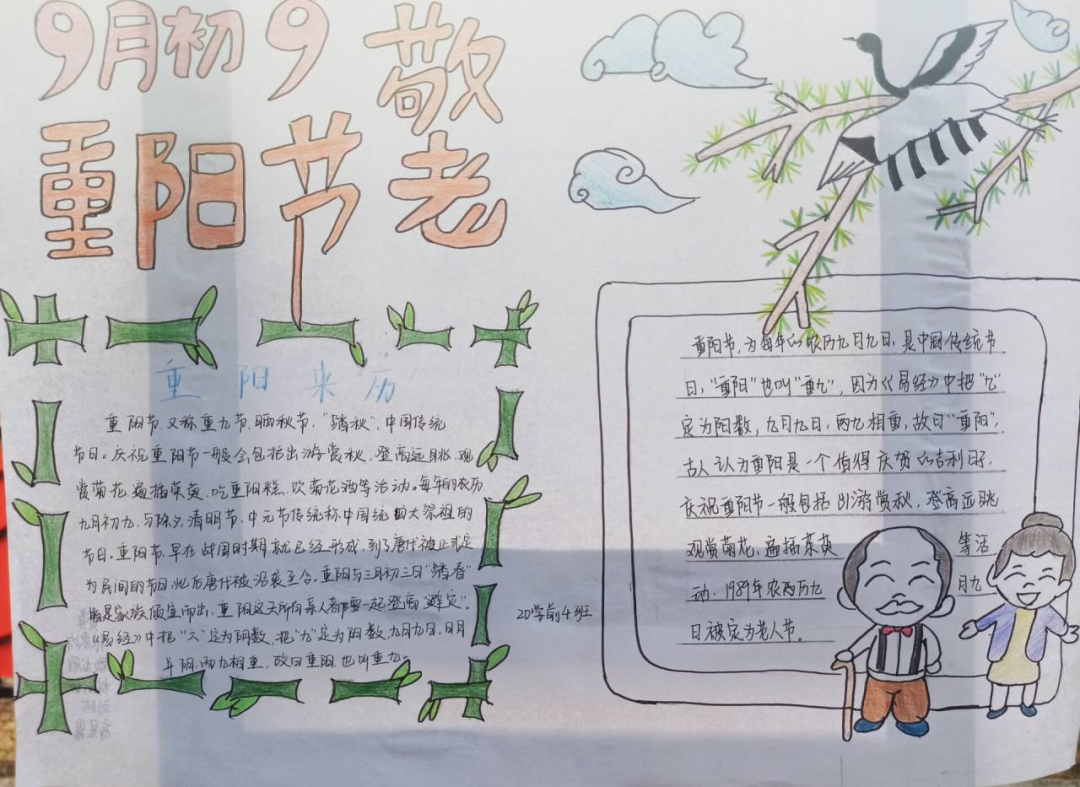 9月初9
敬老
重阳节
重阳来历
重阳节、又称重九节、晒秋节，“踏秋”，中国传统
节日。庆祝重阳节一般会包括出游赏秋、登高远眺、观
赏菊花、遍插茱萸、吃重阳糕、饮菊花酒等活动。每年的农历
九月初九，与除夕、清明节、中元节传统称中国统四大祭祖的
节日。重阳节，早在战国时期就已经形成，到了唐代被正式定
为民间的节日，此后唐代被沿袭至今。重阳与三月初三日“踏春”
皆是家族倾室而出，重阳这天所有亲人都要一起登高“避灾”。
《易经》中把“六”定为阴数，把“九”定为阳数，九月九日，日月
年阴，两九相重，故曰重阳，也叫重九。
20学前4班
重阳节，为每年的农历九月九日，是中国传统节
日，“重阳”也叫“重九”，因为《易经》中把“九”
定为阳数，九月九日，两九相重，故曰“重阳”，
古人认为重阳是一个值得庆贺的吉利日子，
庆祝重阳节一般包括出游赏秋，登高远眺
观赏菊花，遍插茱萸 等活
动．1989年农两历九 月九
日被定为老人节。